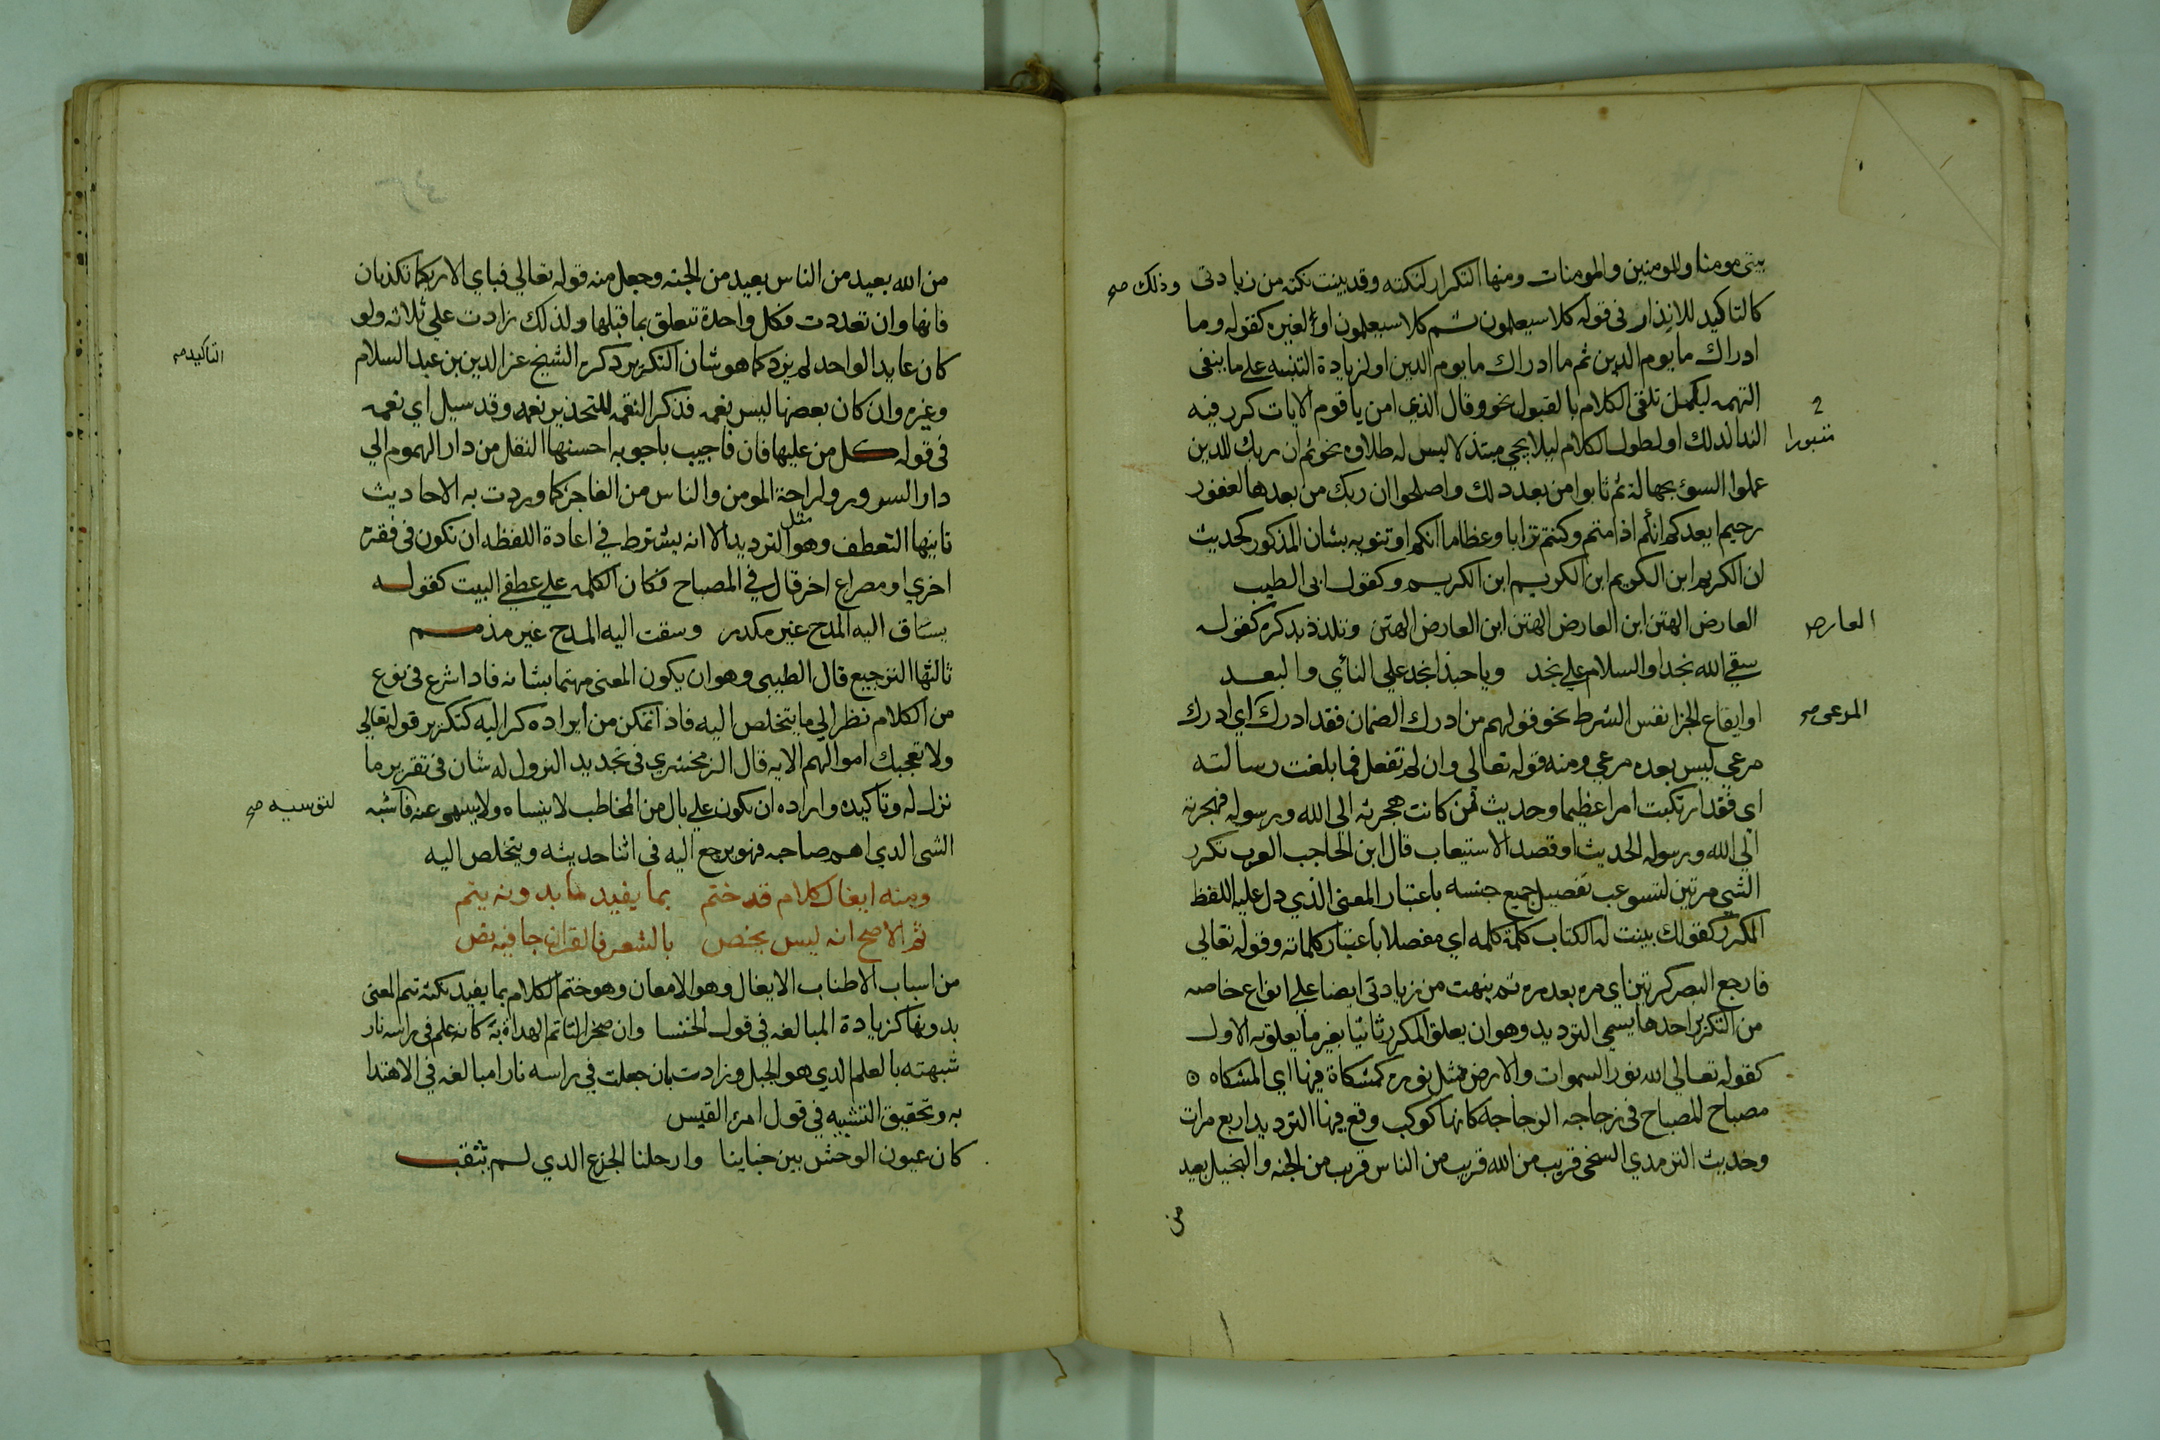 بيتي مومنا وللمومنين والمومنات ومنها التكرار لنكتة وقد بينت نكته من زيادتي وذلك صح
كالتاكيد للانذار في قوله كلا سيعلمون ثم كلا سيعلمون او لغيره كقوله وما
ادراك ما يوم الدين ثم ما ادراك ما يوم الدين او لزيادة التنبيه على ما ينفي
التهمه ليكمل تلقي الكلام بالقبول نحو وقال الذي امن يا قوم الايات كرر فيه
الندا لذلك او لطول الكلام ليلا يجي مبتذلا ليس له طلاوه نحو ثم ان ربك للذين
عملوا السؤ بجهالة ثم تابوا من بعد ذلك واصلحوا ان ربك من بعدها لغفور
رحيم ايعدكم انكم اذا متم وكنتم ترابا وعظاما انكم او تنويه بشان المذكور كحديث
ان الكريم ابن الكريم ابن الكريم ابن الكريم وكقول ابي الطيب
العارض الهتن ابن العارض الهتن ابن العارض الهتن وتلذذ بذكره كقوله
العارض
سقي الله نجدا والسلام علي نجد ويا حبذا نجد علي النأي والبعد
او ايقاع الجزا نفس الشرط نحو قولهم من ادرك الضمان فقد ادرك اي ادرك
المرعى صح
مرعي ليس بعده مرعي ومنه قوله تعالي وان لم تفعل فما بلغت رسالته
اي فقد ارتكبت امرا عظيما وحديث فمن كانت هجرته الي الله ورسوله فهجرته
الي الله ورسوله الحديث او قصد الاستيعاب قال ابن الحاجب العرب تكرر
الشي مرتين لتستوعب تفصيل جميع جنسه باعتبار المعني الذي دل عليه اللفظ
المكرر كقولك بينت له الكتاب كلمة كلمه اي مفصلا باعتبار كلماته وقوله تعالي
فارجع البصر كرتين اي مره بعد مره ثم نبهت من زيادتي ايضا علي انواع خاصه
من التكرير احدها يسمي الترديد وهو ان يعلق المكرر ثانيا بغير ما يعلق به الاول
كقوله تعالي الله نور السموات والارض مثل نوره كمشكاة فيها اي المشكاه
مصباح المصباح في زجاجه الزجاجة كانها كوكب وقع فيها الترديد اربع مرات
وحديث الترمذي السخي قريب من الله قريب من الناس قريب من الجنه والبخيل بعيد
من
من الله بعيد من الناس بعيد من الجنه وجعل منه قوله تعالي فباي الا ربكما تكذبان
فانها وان تعددت فكل واحدة تتعلق بما قبلها ولذلك زادت علي ثلاثه ولو
كان عايدا لواحد لم يزد كما هو شان التكرير ذكره الشيخ عز الدين بن عبد السلام
التاكيد صح
وغيره وان كان بعضها ليس نعمه فذكر النقمه للتحذير نعمه وقد سيل اي نعمه
في قوله كل من عليها فان فاجيب باجوبه احسنها النقل من دار الهموم الي
دار السرور ولراحة المومن والناس من الفاجر كما وردت به الاحاديث
ثانيها التعطف وهو مثل الترديد الا انه يشترط في اعادة اللفظه ان تكون في فقرة
اخري او مصراع اخر قال في المصباح فكان الكلمه علي عطفي البيت كقوله
يساق اليه المدح غير مكدر وسقت اليه المدح غير مذمم
ثالثها الترجيع قال الطيبي وهو ان يكون المعني مهتما بشانه فاذا شرع في نوع
من الكلام نظر الي ما يتخلص اليه فاذا تمكن من ايراده كر اليه كتكرير قوله تعالي
ولا تعجبك اموالهم الايه قال الزمخشري في تجديد النزول له شان في تقرير ما
نزل له وتاكيده واراده ان يكون علي بال من المخاطب لا ينساه ولا يسهي عنه فاشبه
الشي الذي اهم صاحبه فهو يرجع اليه في اثنا حديثه ويتخلص اليه
ومنه ايغال كلام قد ختم بما يفيد ما بدونه يتم
ثم الاصح انه ليس يختص بالشعر فالقران جا فيه نص
من اسباب الاطناب الايغال وهو الامعان وهو ختم الكلام بما يفيد نكته تتم المعني
بدونها كزيادة المبالغه في قول الخنسا وان صخرا لتاتم الهداة به كانه علم في راسه نار
شبهته بالعلم الذي هو الجبل وزادت بان جعلت في راسه نارا مبالغه في الاهتدا
به وتحقيق التشبيه في قول امرء القيس
كان عيون الوحش بين خباينا وارحلنا الجزع الذي لم يثقب